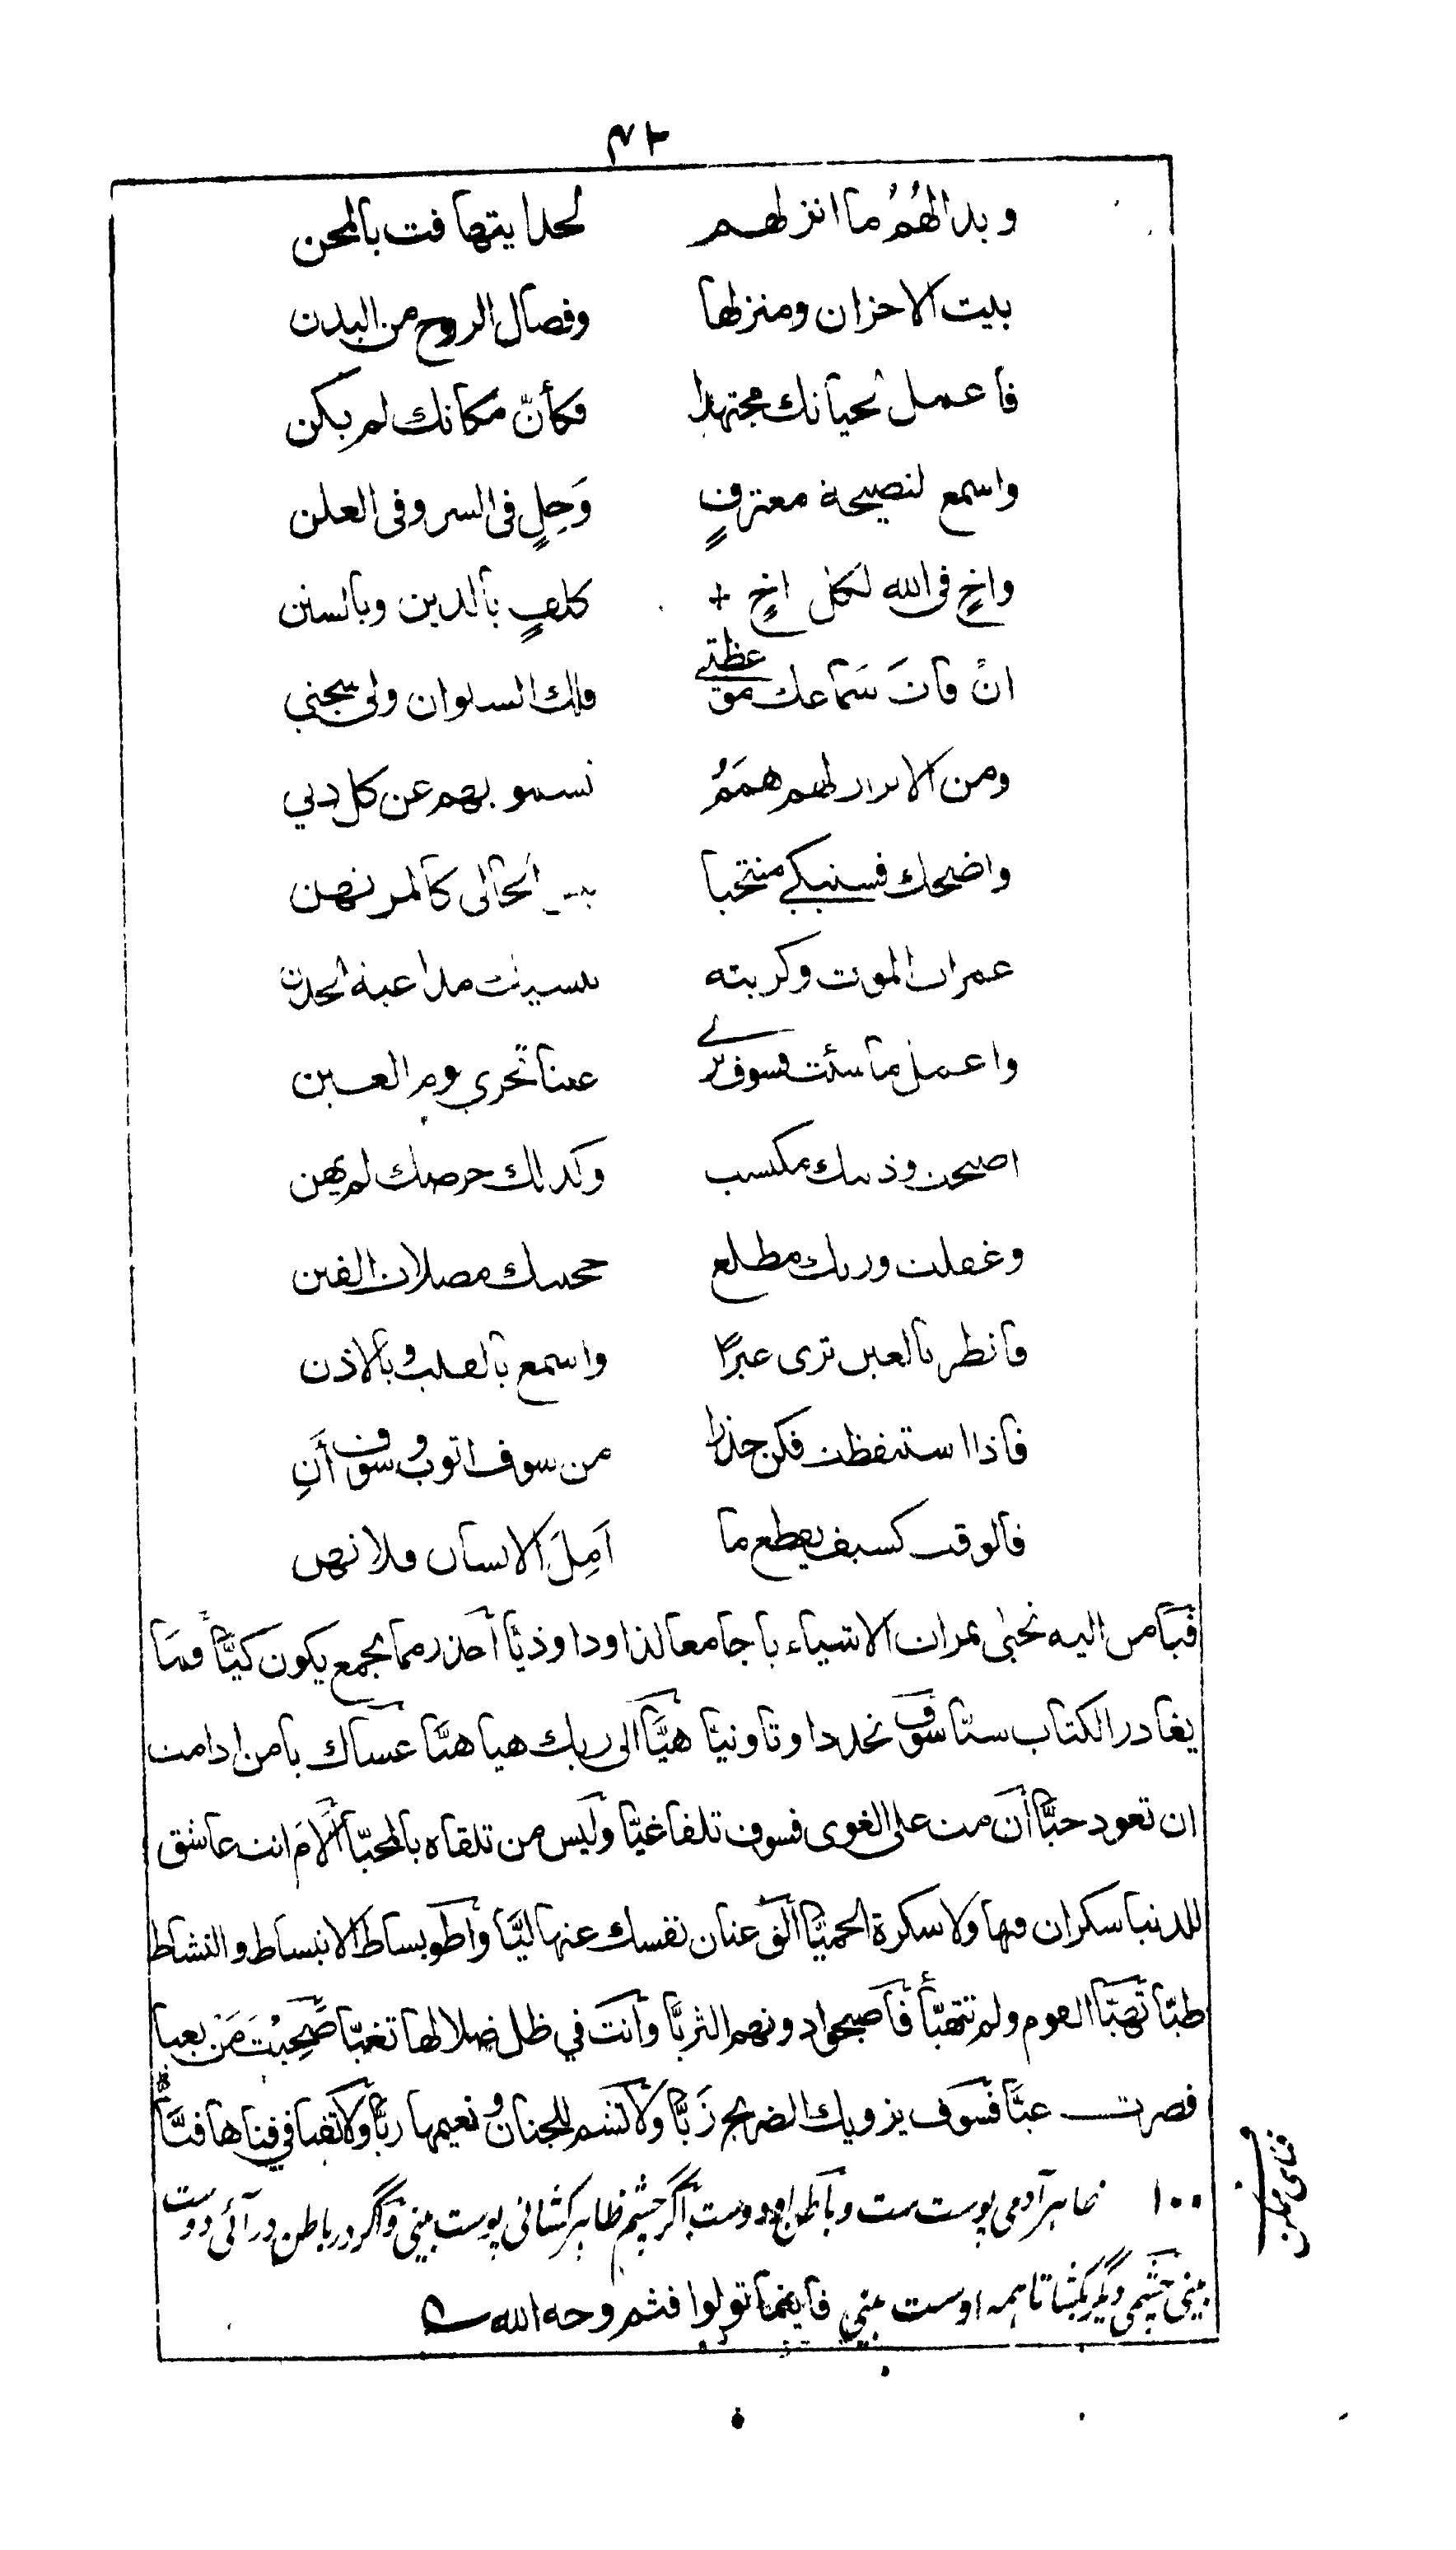 ٤٢
وبدا لهُمُ ما انزلهم لحدا يتهافت بالمحن
بيت الاحزان ومنزلها وفصال الروح من البدن
فاعمل لحياتك مجتهدا فكأنّ مكانك لم يكن
واسمع لنصيحة معترفٍ وَجِلٍ فى السر وفى العلن
واخٍ فى الله لكل اخٍ + كلفٍ بالدين وبالسنن
انْ فاتَ سَماعك موعظتى فلك السلوان ولى شجنى
ومن الابرار لهم هممَُ تسمو بهم عن كل دني
واضحك فستبكى منتحبا الحالى كالمرتهن
غمرات الموت وكربته نسيت ملاعبة
واعمل ما شئت فسوف ترى عينا تجرى يوم الغبن
اصبحت وذنبك مكتسب وكذلك حرصك لم يهن
وغفلت وربك مطلع الفتن
فانظر بالعين ترى عبرًا واسمع بالقلب وبالاذن
فاذا استيقظت فكن حذرا من سوف اتوب وسوف أَنِ
فالوقت كسيف يقطع ما اَمِلَ الانسان فلا تهن
فيا من اليه تجبى ثمرات الاشياء يا جامعا لذا وذا وذيّا أحذر مما تجمع يكون كيّا فما
يغادر الكتاب شيّا سوف تجد ذا وتا وتيّا هيّا الى ربك هيا هيّا عساك يا من
ان تعود حيّا أن مت على الغوى فسوف تلقا غيّا وليس من تلقاه بالمحيّا ألامَ انت عاشق
للدنيا سكران فيها ولا سكرة الحميّا ألق عنان نفسك عنها ليّا وأطو بساط الانبساط والنشاط
طيّا تهيّا القوم ولم تتهيّا فاصبحوا دونهم الثريّا وأنت في ظل ضلالها تغيّا صَحِبْتَ مَنْ
فصرت عيّا فسوف يزويك الضريح زَيّا ولا تشم للجنان ونعيمها ريّا ولا تفيا في فناها فيّا
١٠٠ ظاهر آدمى پوست ست وباطن او دوست اگر چشم ظاهر كشائى پوست بينى واگر در باطن در آئى دوست
بينى چشمى ديگر بكشا تا همه اوست بينى فاينما تولوا فثم وجه الله